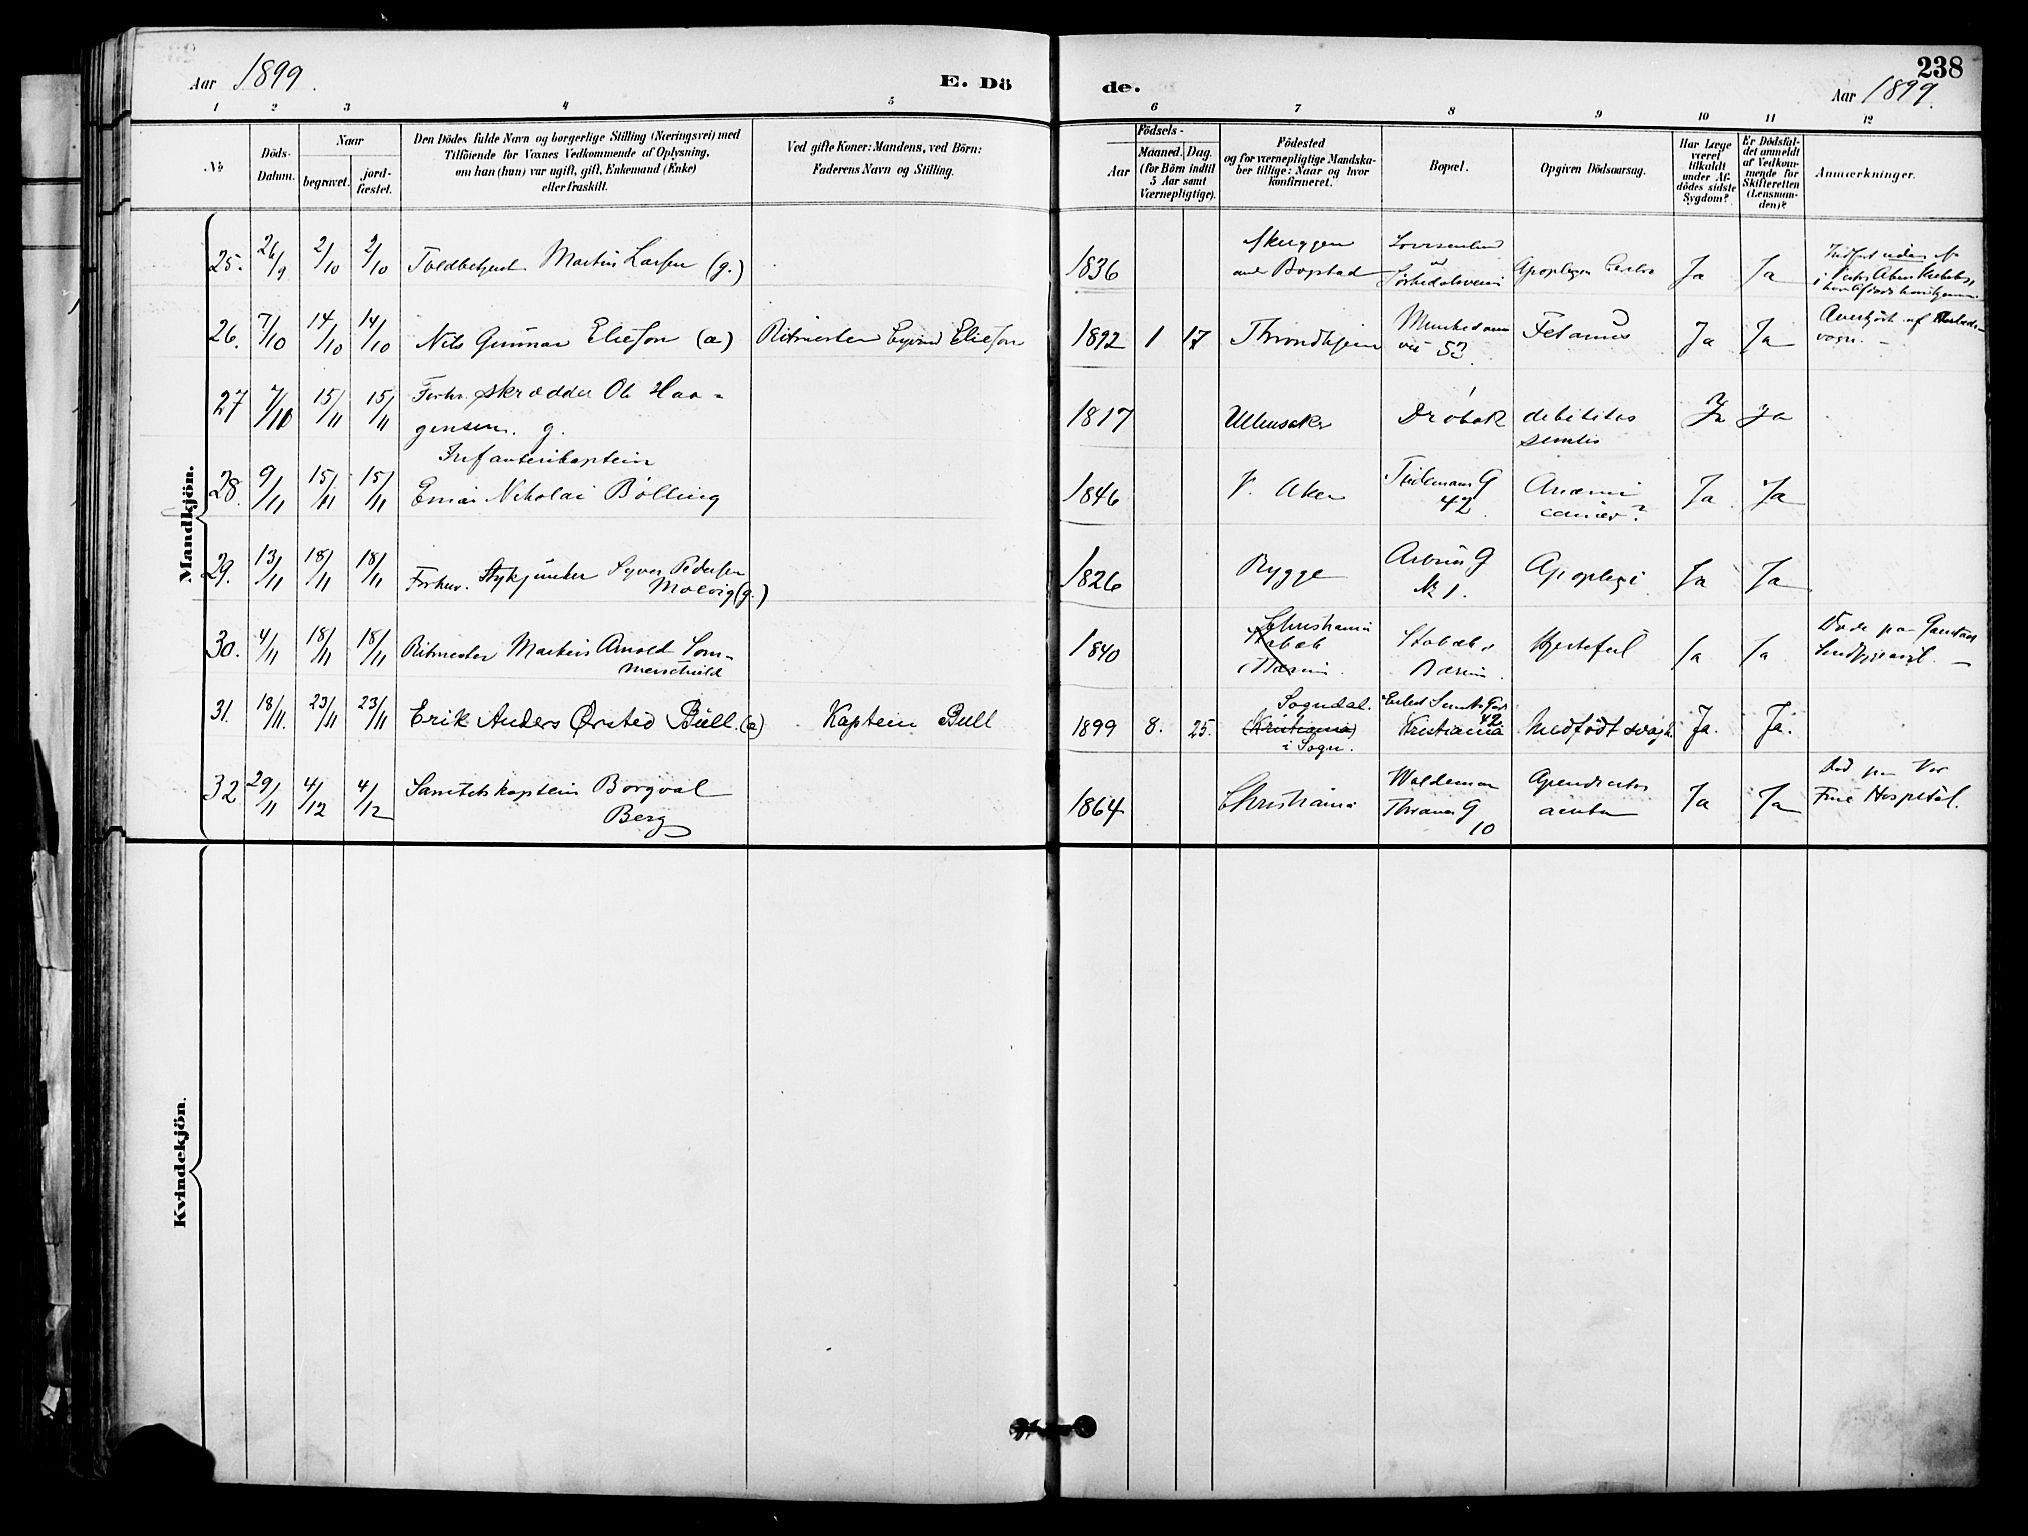 Aar 1899.
E. Dö
de.
238
Aar 1899.
1 2 3 4 5 6 7 8 9 10 11 12
No
Döds-
Datum.
Naar
begravet.
jord-
fæstet.
Den Dödes fulde Navn og borgerlige Stilling (Næringsvei) med
Tilföiende for Voxnes Vedkommende af Oplysning,
om han (hun) var ugift, gift, Enkemand (Enke)
eller fraskilt.
Ved gifte Koner: Mandens, ved Börn:
Faderens Navn og Stilling.
Födsels-
Aar
Maaned.
Dag.
(for Börn indtil
5 Aar samt
Værnepligtige).
Födested
og for værnepligtige Mandska-
ber tillige: Naar og hvor
konfirmeret.
Bopæl.
Opgiven Dödsaarsag.
Har Læge
været
tilkaldt
under Af-
dödes sidste
Sygdom?
Er Dödsfal-
det anmeldt
af Vedkom-
mende for
Skifteretten
(Lensman-
den)?
Anmærkninger.
Mandkjön.
25. 26/9 2/10 2/10 Toldbetjent Martin Larsen (g.) 1836 Skuggen
Bogstad
Sørkedalsveien
Apoplexia
Ja Ja
26. 7/10 14/10 14/10 Nils Gunnar Elieson (a) Ritmester Eyvind Elieson 1892 1 17 Throndhjem
Munkedams
vei 53.
Tetanus Ja Ja
Overkjört af
vogn.
27 7/10 15/11 15/11 Forhv. Skrædder Ole Haa-
gensen. g.
1817 Ullensaker Dröbak debilitas
senilis
Ja Ja
28. 9/11 15/11 15/11 Infanterikaptein
Einar Nikolai Bölling
1846 V. Aker
Tidemans G
42
Anæmi
cancer?
Ja Ja
29. 13/11 18/11 18/11 Forhv. Stykjunker Syver Pedersen
Molvig (g.)
1826 Rygge
Asbiörns G
No 1.
Apoplexi Ja Ja
30. 4/11 18/11 18/11 Ritmester Martin Arnold Som-
merschield
1840 Christiania
Stabæk
i Bærum.
Stabæk
Bærum.
Hjertefeil Ja Ja
Döde paa Gaustad
Sindssygeasyl.
31. 18/11. 23/11 23/11 Erik Anders Ørsted Bull. (a) Kaptein Bull 1899 8. 25. Sogndal.
(Kristiania)
i Sogn.
Eilert Sundts Gd.
42.
Kristiania
Medfödt svagh. Ja. Ja.
32 29/11 4/12 4/12 Sanitetskaptein Borgval
Berg
1864 Christiania
Waldemar
Thranes G
10
Apendicitis
acuta
Ja Ja
Död paa Vor
Frue Hospital.
Kvindekjön.